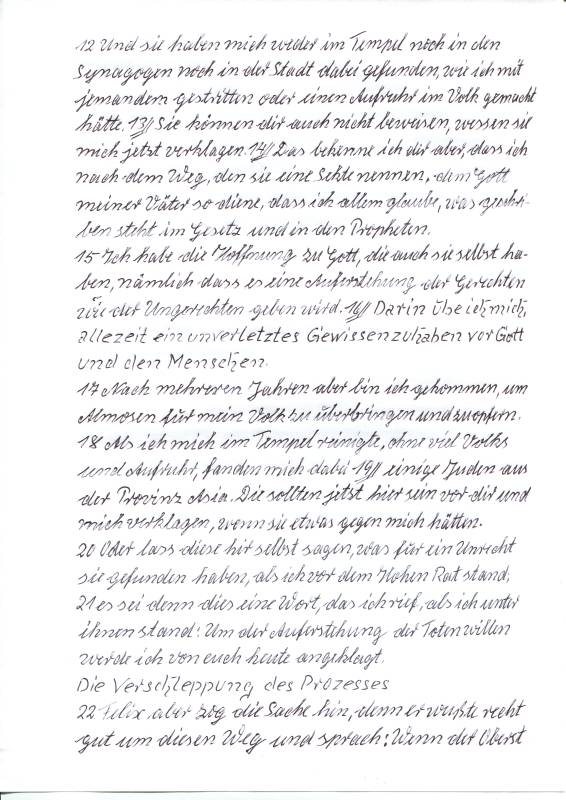 12 Und sie haben mich weder im Tempel noch in den
Synagogen noch in der Stadt dabei gefunden, wie ich mit
jemandem gestritten oder einen Aufruhr im Volk gemacht
hätte. 13// Sie können dir auch nicht beweisen, wessen sie
mich jetzt verklagen. 14// Das bekenne ich dir aber, dass ich
nach dem Weg, den sie eine Sekte nennen, dem Gott
meiner Väter so diene, dass ich allem glaube, was geschrie-
ben steht im Gesetz und in den Propheten.
15 Ich habe die Hoffnung zu Gott, die auch sie selbst ha-
ben, nämlich dass es eine Auferstehung der Gerechten
wie der Ungerechten geben wird. 16// Darin übe ich mich,
allezeit ein unverletztes Gewissen zu haben vor Gott
und den Menschen.
17 Nach mehreren Jahren aber bin ich gekommen, um
Almosen für mein Volk zu überbringen und zu opfern.
18 Als ich mich im Tempel reinigte, ohne viel Volks
und Aufruhr, fanden mich dabei 19// einige Juden aus
der Provinz Asia. Die sollten jetzt hier sein vor dir und
mich verklagen, wenn sie etwas gegen mich hätten.
20 Oder lass diese hir selbst sagen, was für ein Unrecht
sie gefunden haben, als ich vor dem Hohen Rat stand,
21 es sei denn dies eine Wort, das ich rief, als ich unter
ihnen stand: Um der Auferstehung der Toten willen
werde ich von euch heute angeklagt.
Die Verschleppung des Prozesses
22 Felix aber zog die Sache hin, denn er wußte recht
gut um diesen Weg und sprach: Wenn der Oberst